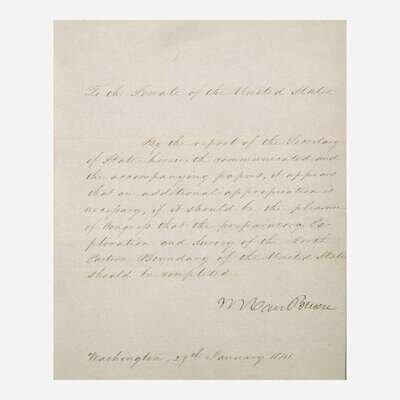 To the Senate of the United States
By the report of the Secretary
of State herewith communicated, and
the accompanying papers, it appears
that an additional appropriation is
necessary, if it should be the pleasure
of Congress that the preparatory Ex-
ploration and Survey of the North
Eastern Boundary of the United States
should be completed.
M Van Buren
Washington, 29th January 1841.